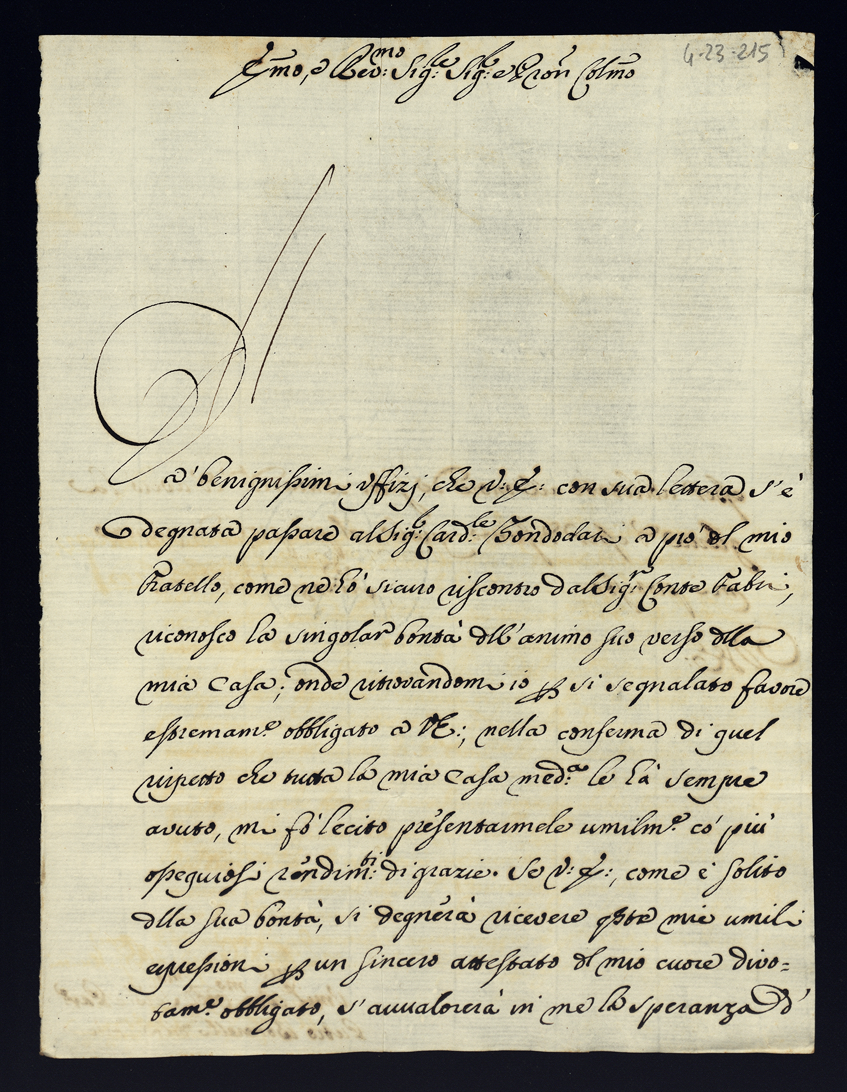 4-23-215
Em̃o, e Rev:mo Sig:le Sig:le e Pron Colm̃o
Da' benignissimi uffizj, che V: E: con sua lettera s'è
degnata passare al Sig:le Card:le Bondodari a prò dl mio
Fratello, come ne hò sicuro riscontro dal Sig:r Conte Fabri,
riconosco la singolar bontà dll'animo suo verso dlla
mia Casa; onde ritrovandomi io p si segnalato favore
estremam:e obbligato a VE:, nella conferma di quel
rispetto che tutta la mia Casa med:a le hà sempre
avuto, mi fò lecito presentarmele umilm:e co' più
ossequiosi rendim:ti di grazie. Se V: E:, come è solito
dlla sua bontà, si degnerà ricevere qste mie umili
espressioni p un sincero attestato dl mio cuore divo=
tam:e obbligato, s'avvalorerà in me la speranza d'